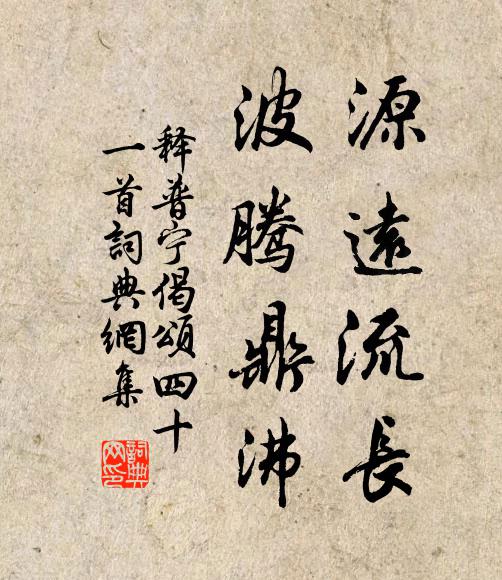 源遠流長
波腾鼎沸
释普宁偈頌四十
一首詞典網集
詞典
网印